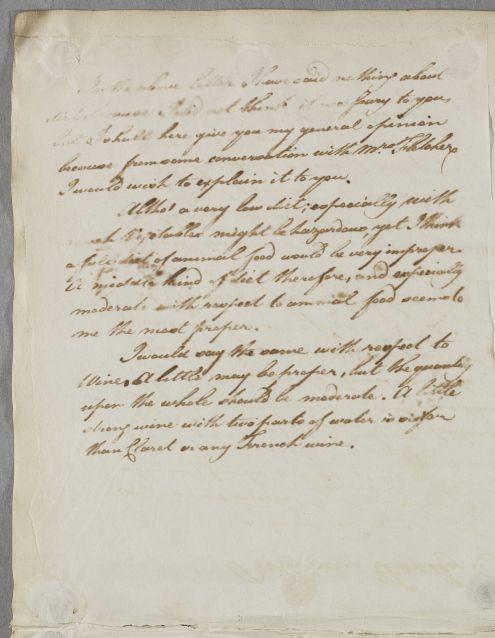 In the above letter I have said nothing about
diet, because I did not think it necessary to you,
but I shall here give you my general opinion
because from some conversation with Mrs Fletcher
I would wish to explain it to you.
Altho' a very low diet, especially with
much Vegetables might be hazardous, yet I think
a full diet of animal food would be very improper
kind of diet therefore, and especially
moderate with respect to animal food seems to
me the most proper.
I would say the same with respect to
Wine. A little may be proper, but the quantity
upon the whole should be moderate. A little
strong wine with two parts of water is safer
than Claret or any French wine.